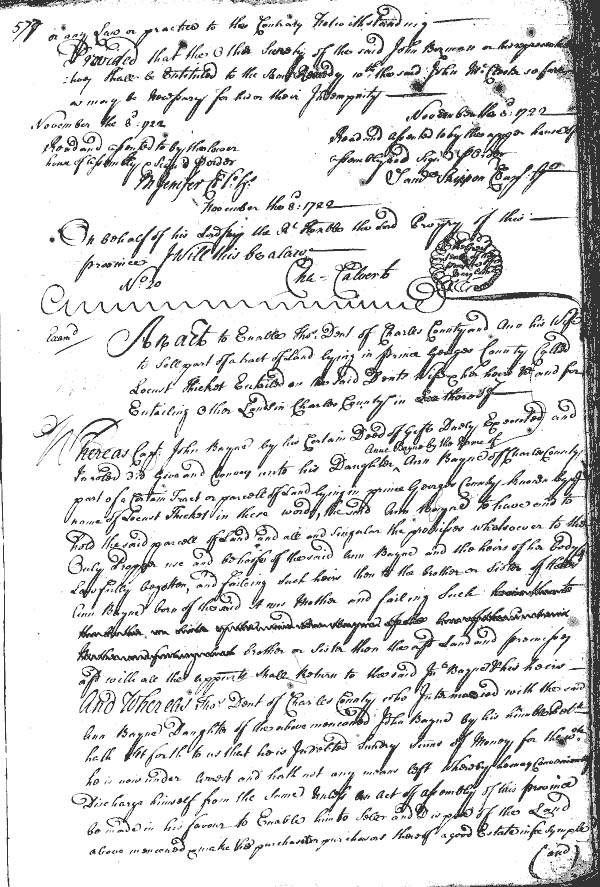 or any Law or practice to the Contrary Notwithstanding
Provided that the other Surety of the said John Bowman or his
shall be Entituled to the Same Remedy wth the said John so far
as may be Necessary for his or their Indempnity
November the 8: 1722
Read and assented to by the Lower
house of assembly & Signd Porder
M Jenifer Cl. L. H.
November the 8: 1722
Read and assented to by the upper house of
assembly and Sign'd P Order
Saml Skippon
November the 8: 1722
On behalf of his Lordship the Rt Honble the Lord Propry of this
province I Will this be a Law
No 20
Cha Calvert
Exam'd
An act to Enable Tho: Dent of Charles County and Ann his Wife
to Sell part of a tract of Land lying in prince Georges County Called
Locust Thicket Entailed on the said Dents Wife & her heirs &c and for
Entailing other Land in Charles County in Lieu thereof
Whereas Capt John Bayne by his Certain Deed of Gift Duely Executed and
Ann Bayne by the Name of
Inroled did Give and Convey unto his Daughter Ann Bayne of Charles County
part of a Certain Tract or parcell of Land lying in prince Georges County known by the
name of Locust Thicket in these words, the said Ann Bayne to have and to
hold the said parcell of Land and all and singular the premises whatsoever to the
Only Propper use and behoofe of the said Ann Bayne and the heirs of her body
Lawfully begotten, and failing Such heirs then to the brother or Sister of
Ann Bayne born of the said Anns Mother and failing Such
brother or Sister then the afd Land and premises
afd with all the appurts Shall Return to the said Jno Bayne & his heirs
And Whereas Tho: Dent of Charles County who Intermarried with the said
Ann Bayne Daughter of the above menconed John Bayne by his humble petn
hath Set forth to us that he is Indebted Sundry Sums of Money, for the wch
he is now under Arrest and hath not any means left whereby he may Conveniently
Discharge himself from the Same Unless an Act of assembly of this province
be made in his favour to Enable him to Sell and Dispose of the Land
above menconed & make the purchaser or purchasers thereof a good Estate in fee Symple
(and)